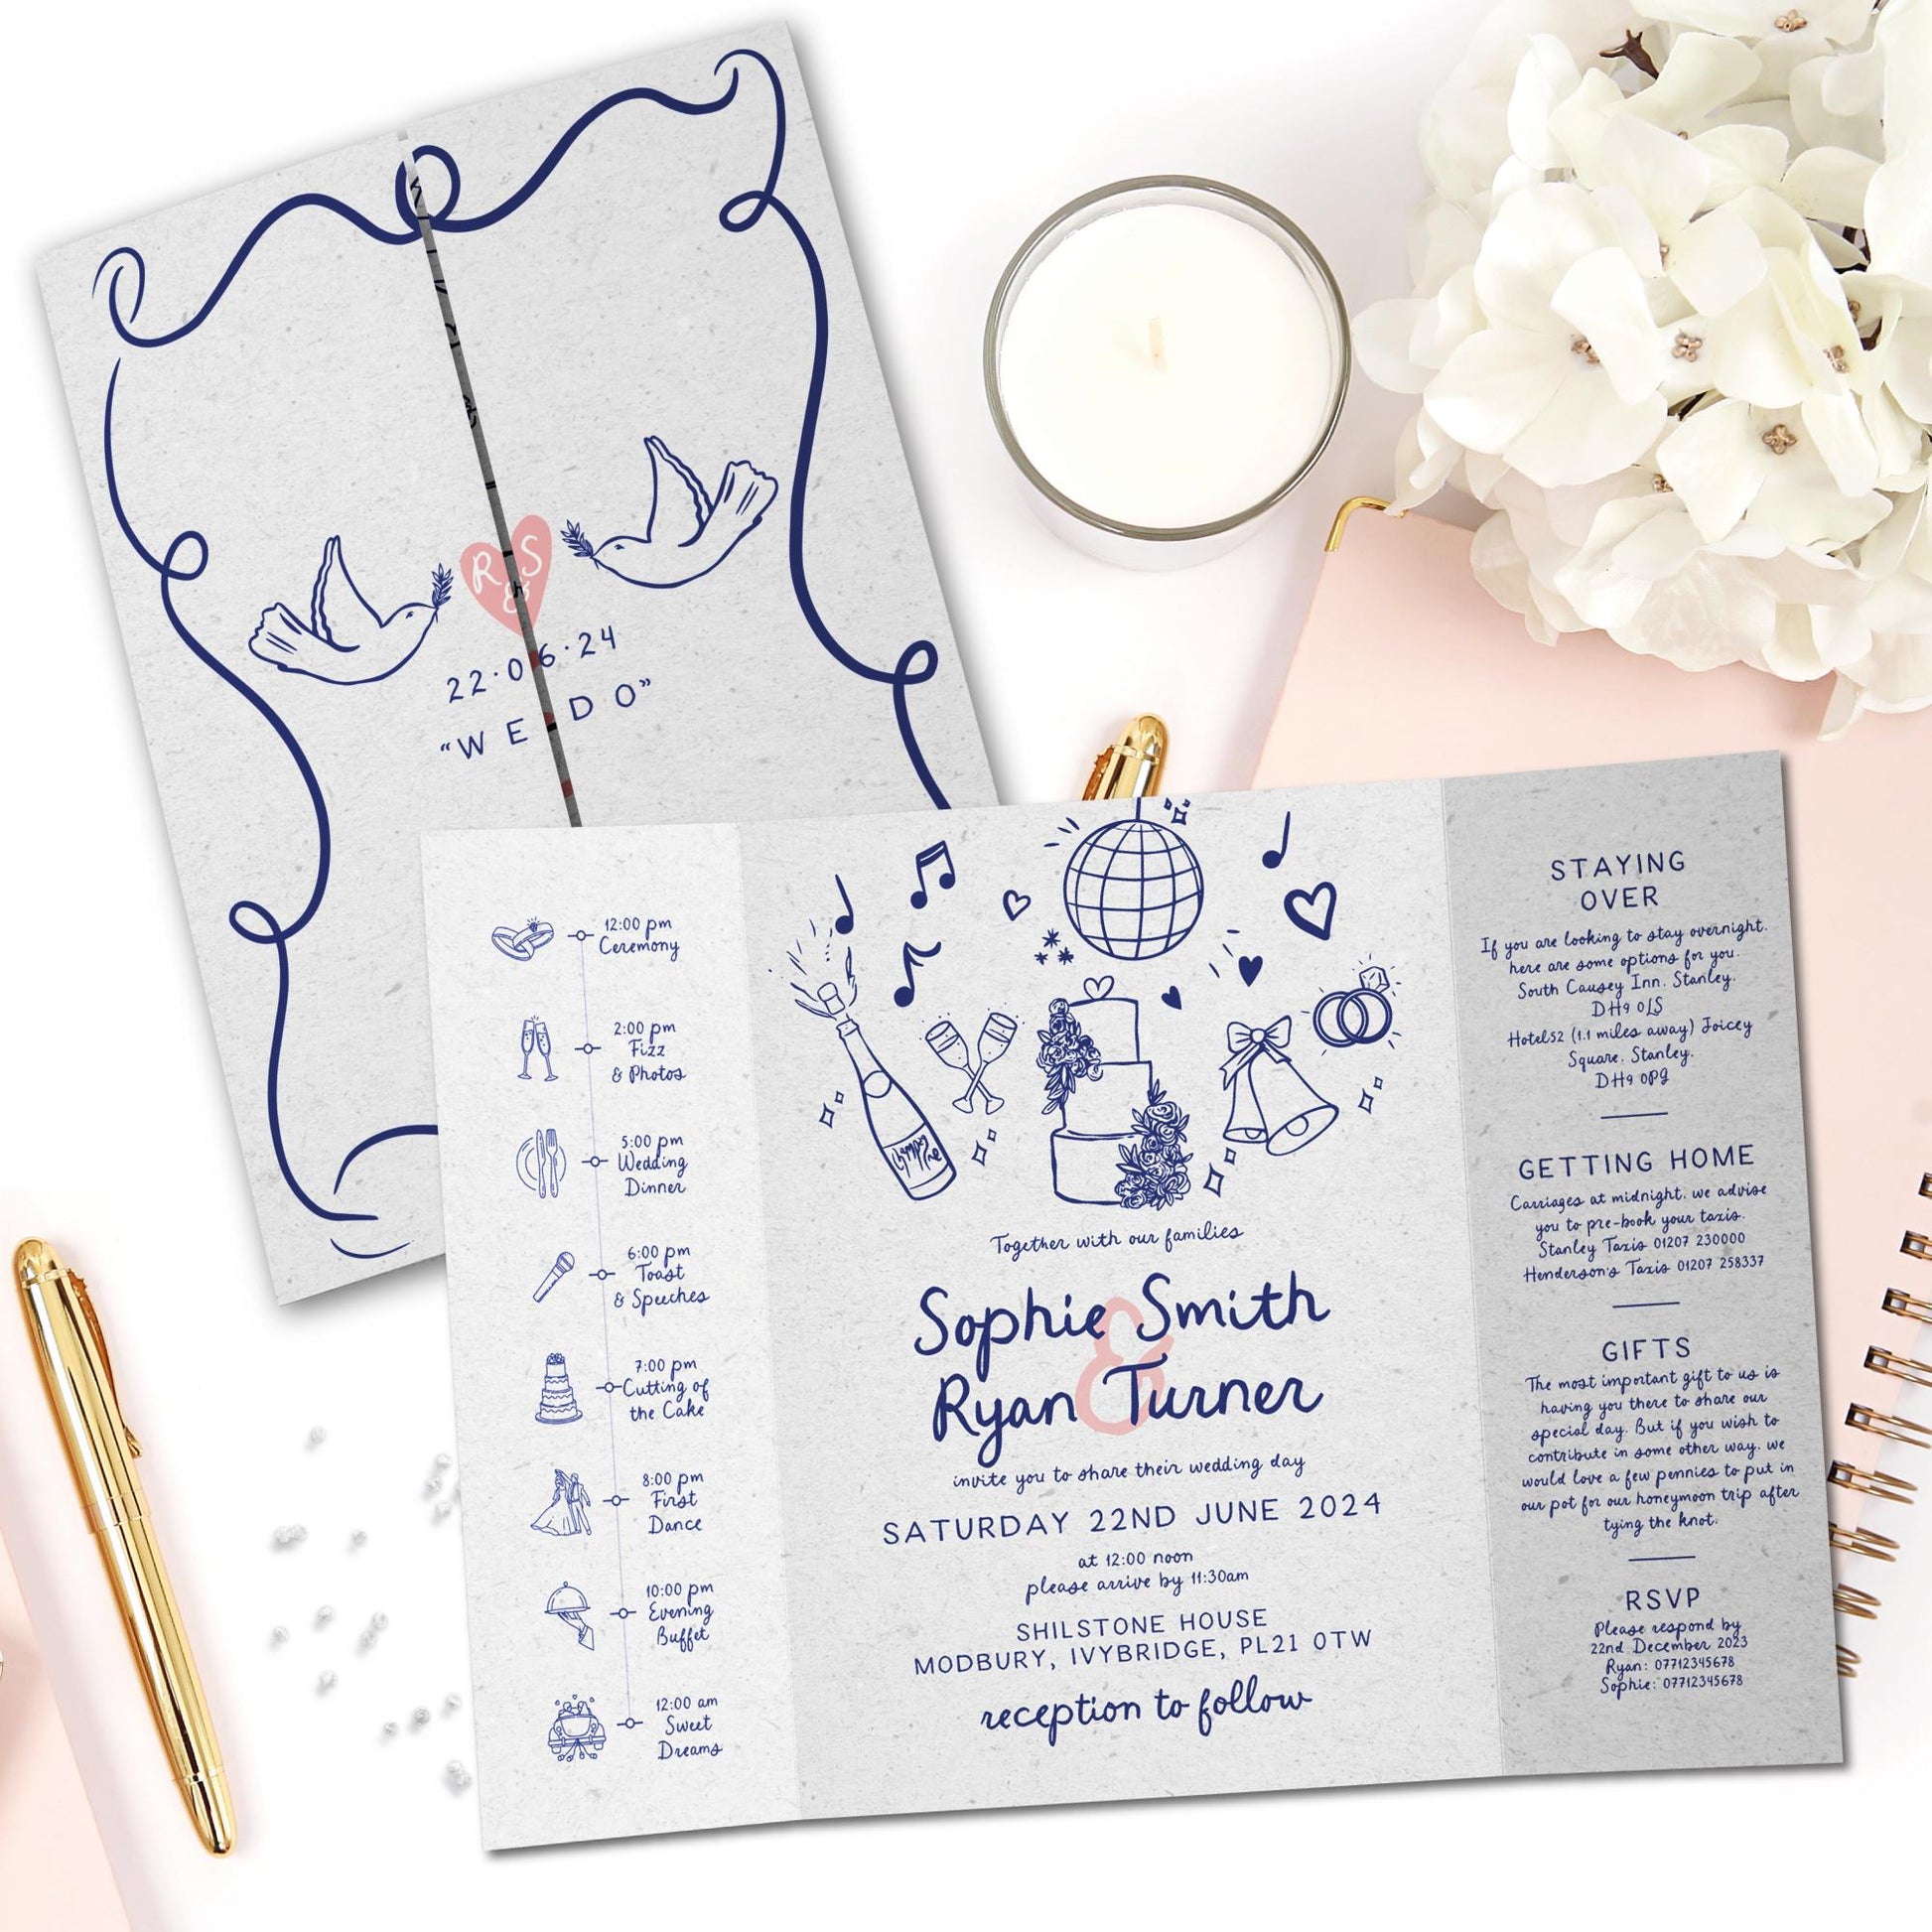 R S
&
22·06·24
"WE DO"
12:00 pm
Ceremony
2:00 pm
Fizz
& Photos
5:00 pm
Wedding
Dinner
6:00 pm
Toast
& Speeches
7:00 pm
Cutting of
the Cake
8:00 pm
First
Dance
10:00 pm
Evening
Buffet
12:00 am
Sweet
Dreams
Together with our families
Sophie Smith
&
Ryan Turner
invite you to share their wedding day
SATURDAY 22ND JUNE 2024
at 12:00 noon
please arrive by 11:30am
SHILSTONE HOUSE
MODBURY, IVYBRIDGE, PL21 0TW
reception to follow
STAYING
OVER
If you are looking to stay overnight,
here are some options for you.
South Causey Inn, Stanley,
DH9 0LS
Hotel52 (1.1 miles away) Joicey
Square, Stanley,
DH9 0PG
GETTING HOME
Carriages at midnight, we advise
you to pre-book your taxis.
Stanley Taxis 01207 230000
Henderson's Taxis 01207 258337
GIFTS
The most important gift to us is
having you there to share our
special day. But if you wish to
contribute in some other way, we
would love a few pennies to put in
our pot for our honeymoon trip after
tying the knot.
RSVP
Please respond by
22nd December 2023
Ryan: 07712345678
Sophie: 07712345678